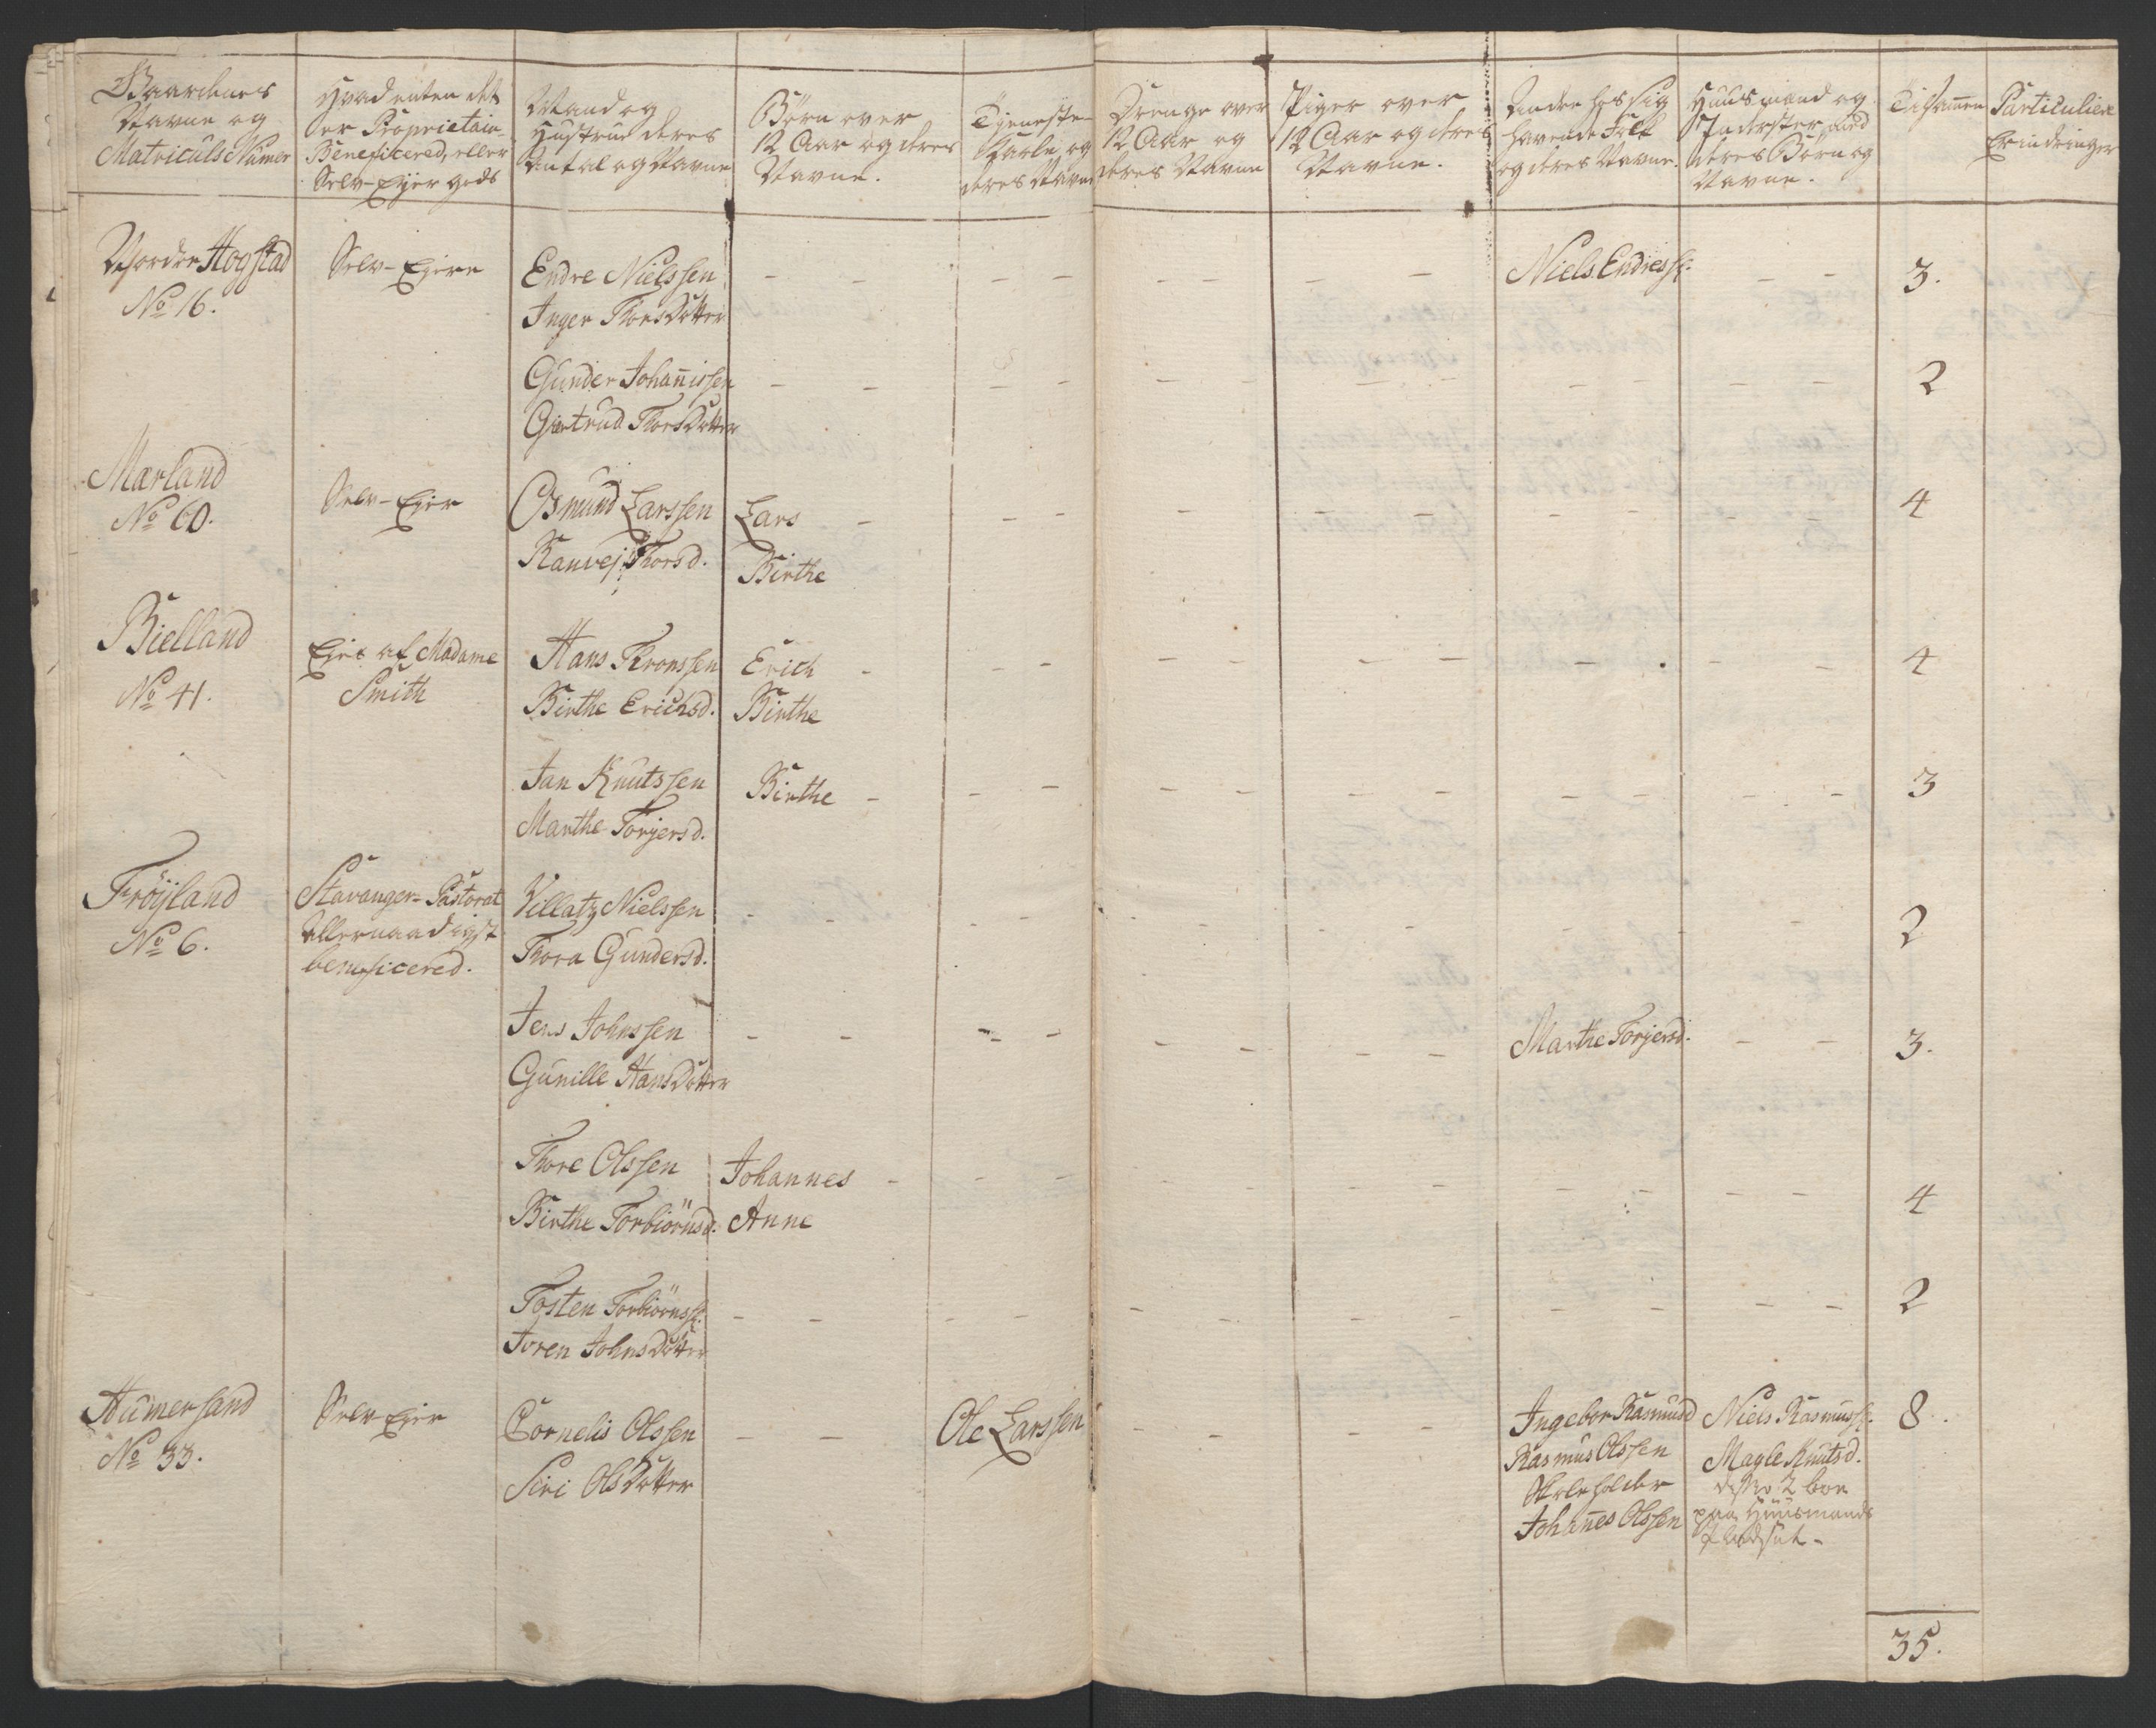 Gaardenes
Navne og
Matriculs Numer
Hvad enten det
er Proprietair
Beneficered, eller
Selv-Ejer gods
Mand og
Hustrue deres
Antal og Navne
Børn over
12 Aar og deres
Navne.
Tjeneste-
Karle og
deres Navne
Drenge over
12 Aar og
deres Navne
Piger over
12 Aar og deres
Navne.
Andre hos sig
havende Folk
og deres Navne.
Huusmænd og
Inderster med
deres Børn og
Navne.
Tilsamen
Particuliere
Erindringer
Nordre Hogstad
No 16.
Selv-Ejere
Endre Nielssen
Inger ThorsDotter
Niels Endress:
3.
Gunder Johanissen
Giertrud ThorsDotter
2
Mærland
No 60.
Selv-Ejer
Osmund Larssen
Ranvej Thorsd.
Lars
Birthe
4
Bielland
No 41.
Ejes af Madame
Smith
Hans Thronssen
Birthe Erichsd.
Erich
Birthe
4
Jan Knutssen
Marthe Torjersd.
Birthe
3
Fröjland
No 6.
Stavanger-Pastorat
Allernaadigst
beneficered.
Villatz Nielssen
Thora Gundersd.
2
Jens Johnssen
Gunille HansDotter
Marthe Torjersd.
3.
Thore Olssen
Birthe Torbiörnsd.
Johannes
Anne
4
Tosten Torbiörnss:
Joren JohnsDotter
2
Humersand
No 33.
Selv-Ejer
Cornelis Olssen
Siri OlsDotter
Ole Larssen
Ingebor Rasmusd
Rasmus Olssen
Skoleholder
Johañes Olssen
Niels Rasmuss:
Magle Knutsd.
disse 2 boe
paa Huusmands
Pladset-
8.
35.